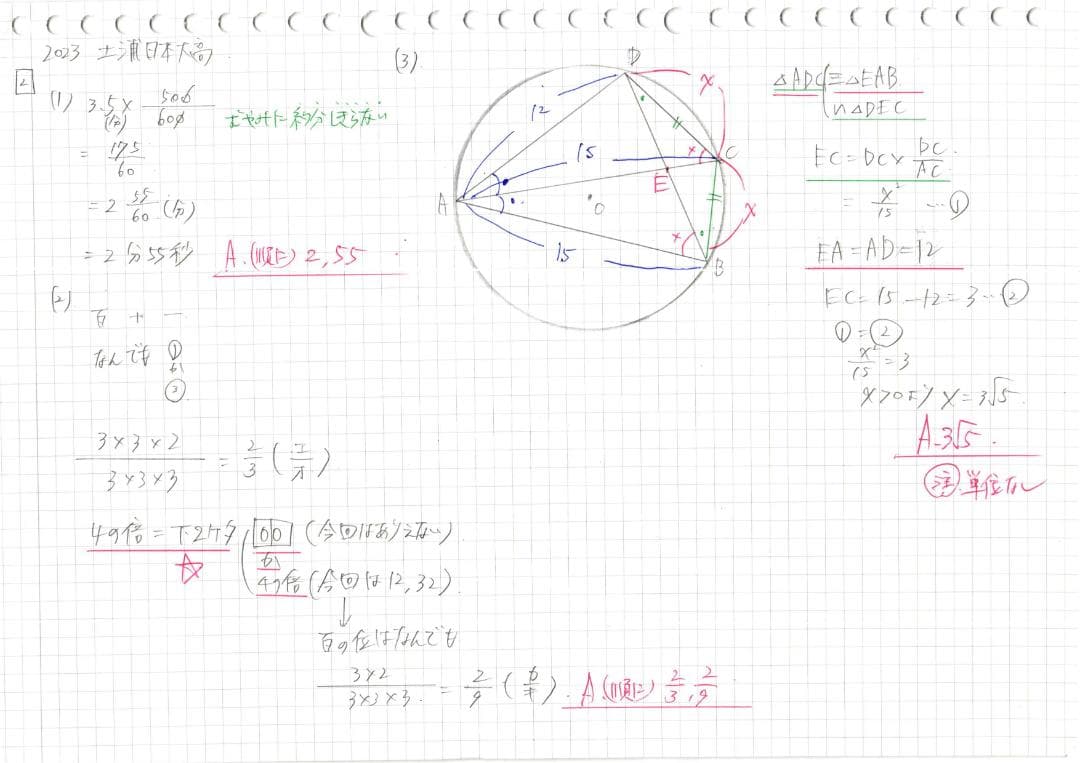 2023 土浦日本大高
2
(1) 3.5 × 500/600 むやみに約分しきらない
(分)
= 175/60
= 2 55/60 (分)
= 2分55秒 A.(順に) 2, 55
(2)
百 十 一
なんでも ①
か
③
3×3×2/3×3×3 = 2/3 (エ/オ)
4の倍 = 下2ケタ 00 (今回はありえない)
か
☆ 4の倍 (今回は12, 32)
↓
百の位はなんでも
3×2/3×3×3 = 2/9 (カ/キ). A.(順に) 2/3, 2/9
(3)
D
x
12
15
C
x
E
x
A
O
x
15
B
△ADC ≡ △EAB
∽ △DEC
EC = DC × DC/AC
= x²/15 … ①
EA = AD = 12
EC = 15 − 12 = 3 … ②
① = ②
x²/15 = 3
x>0より x = 3√5.
A. 3√5.
注. 単位なし